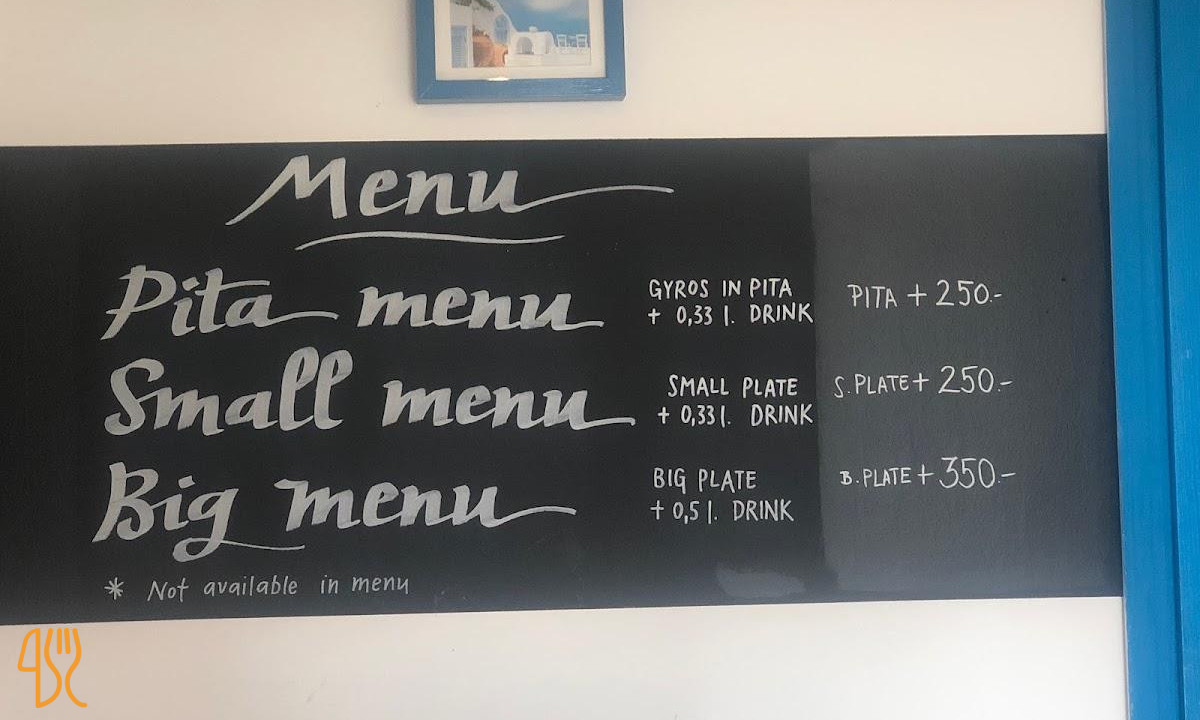 Menu
Pita menu
GYROS IN PITA
+ 0,33 l. DRINK
PITA + 250.-
Small menu
SMALL PLATE
+ 0,33 l. DRINK
S. PLATE + 250.-
Big menu
BIG PLATE
+ 0,5 l. DRINK
B. PLATE + 350.-
* Not available in menu